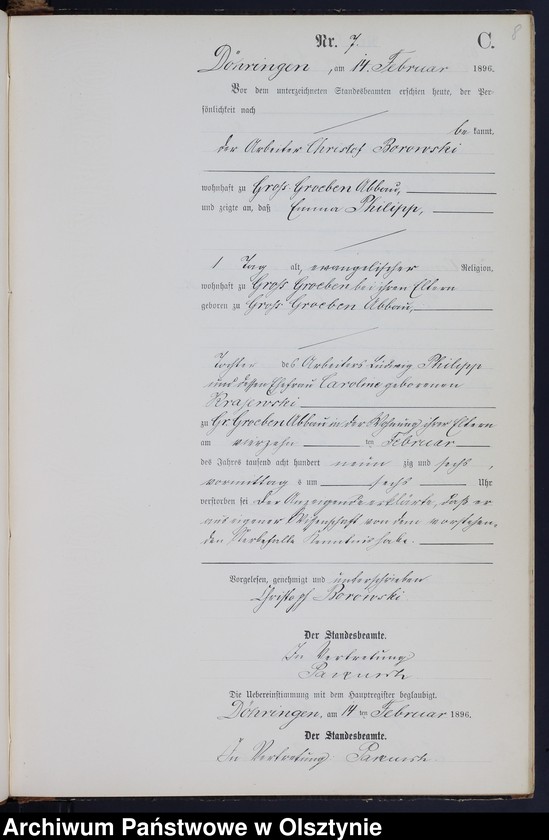 8
Nr. 7. C.
Döhringen, am 14. Februar 1896.
Vor dem unterzeichneten Standesbeamten erschien heute, der Per-
sönlichkeit nach
be kannt,
der Arbeiter Christof Borowski
wohnhaft zu Groß Groeben Abbau,
und zeigte an, daß Emma Philipp,
1 Tag alt, evangelischer Religion,
wohnhaft zu Groß Groeben bei ihren Eltern
geboren zu Groß Groeben Abbau,
Tochter des Arbeiters Ludwig Philipp
und dessen Ehefrau Caroline geborenen
Krajewski
zu Gr. Groeben Abbau in der Wohnung ihrer Eltern
am vierzehn ten Februar
des Jahres tausend acht hundert neun zig und sechs,
vormittag s um sechs Uhr
verstorben sei Der Anzeigende erklärte, daß er
aus eigener Wissenschaft von dem vorstehen-
den Sterbefalle Kenntnis habe.
Vorgelesen, genehmigt und unterschrieben
Christoph Borowski
Der Standesbeamte.
In Vertretung
Die Uebereinstimmung mit dem Hauptregister beglaubigt.
Döhringen, am 14 ten Februar 1896.
Der Standesbeamte.
In Vertretung
Archiwum Państwowe w Olsztynie